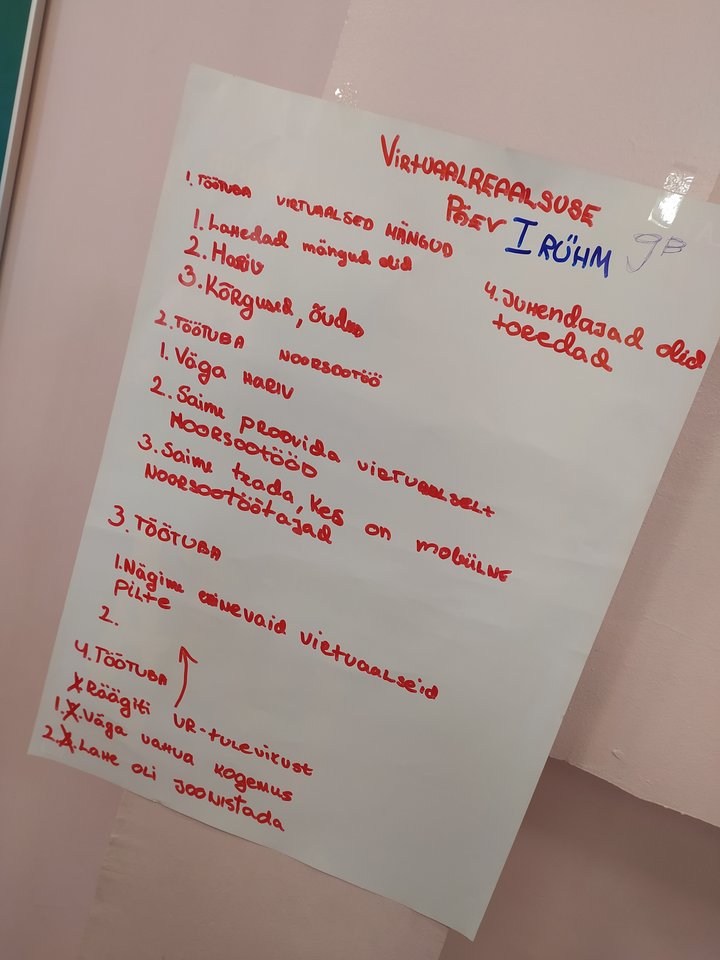 VIRTUAALREAALSUSE
PÄEV I RÜHM 9B
1. TÖÖTUBA VIRTUAALSED MÄNGUD
1. Lahedad mängud olid
2. HARIV
3. KÕrgused, õudne
4. JUHENDAJAD olid
toredad
2. TÖÖTUBA NOORSOOTÖÖ
1. Väga HARIV
2. Saime proovida virtuaalselt
NOORSOOTÖÖD
3. Saime teada, kes on mobiilne
NOORSOOTÖÖtajad
3. TÖÖTUBA
1. Nägime erinevaid virtuaalseid
pilte
2.
4. TÖÖTUBA
Räägiti VR-tulevikust
1. Väga vahva kogemus
2. Lahe oli joonistada